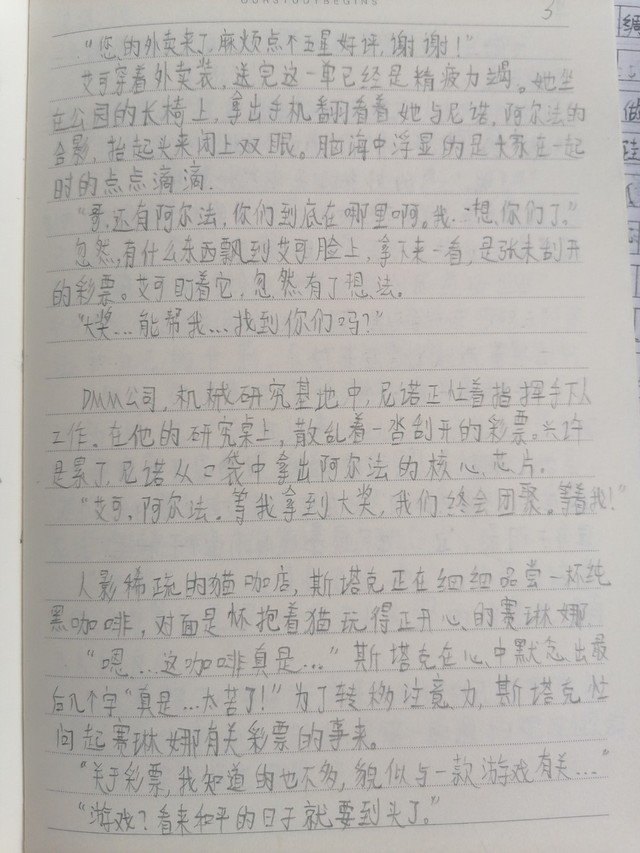 OURSTORYBEGINS
3
“您的外卖来了,麻烦点个五星好评,谢谢!”
艾可穿着外卖装,送完这一单已经是精疲力竭。她坐
在公园的长椅上,拿出手机翻看着她与尼诺,阿尔法的
合影,抬起头来闭上双眼。脑海中浮显的是大家在一起
时的点点滴滴.
“哥,还有阿尔法,你们到底在哪里啊。我…想你们了。”
忽然,有什么东西飘到艾可脸上,拿下来一看,是张未刮开
的彩票。艾可盯着它,忽然有了想法。
“大奖…能帮我…找到你们吗?”
DMM公司,机械研究基地中,尼诺正忙着指挥手下人
工作。在他的研究桌上,散乱着一沓刮开的彩票。兴许
是累了,尼诺从口袋中拿出阿尔法的核心芯片。
“艾可,阿尔法。等我拿到大奖,我们终会团聚。等着我!”
人影稀疏的猫咖店,斯塔克正在细细品尝一杯纯
黑咖啡,对面是怀抱着猫玩得正开心的赛琳娜
“嗯…这咖啡真是…”斯塔克在心中默念出最
后几个字“真是…太苦了!”为了转移注意力,斯塔克忙
问起赛琳娜有关彩票的事来。
“关于彩票,我知道的也不多,貌似与一款游戏有关…”
“游戏?看来和平的日子就要到头了。”